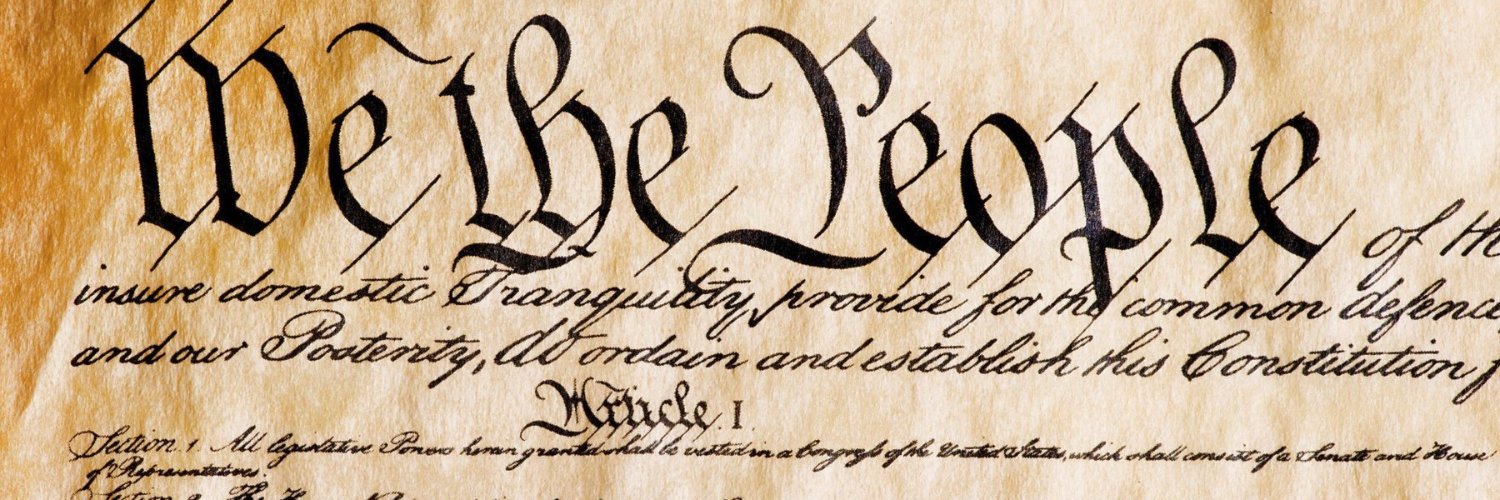 We the People of the
insure domestic Tranquility, provide for the common defence
and our Posterity, do ordain and establish this Constitution f
Article. I.
Section. 1. All legislative Powers herein granted shall be vested in a Congress of the United States, which shall consist of a Senate and House
of Representatives.
Section. 2. The H